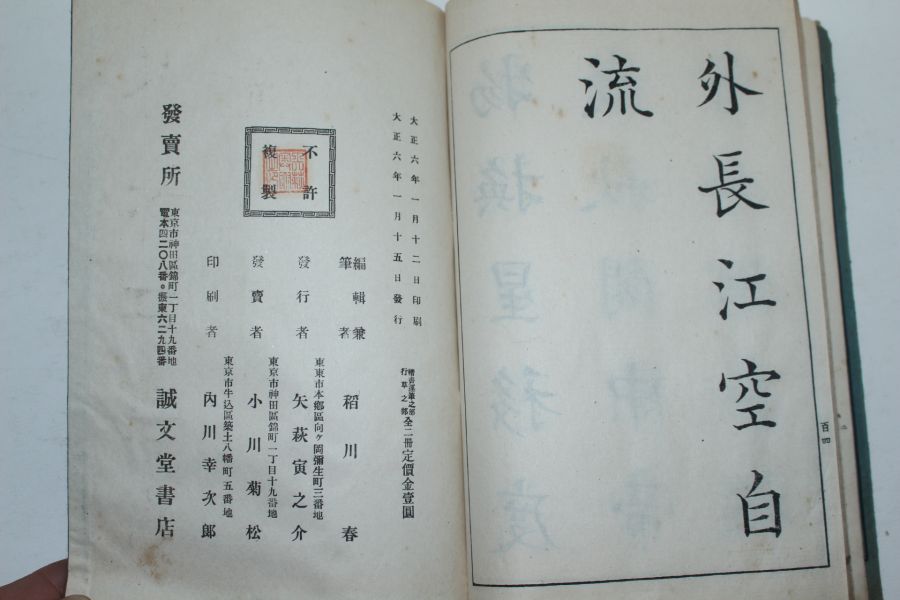 外長江空自
流
百四
大正六年一月十二日印刷
大正六年一月十五日發行
行草之部
全二冊定價金壹圓
不許
複製
編輯兼
筆者
稻川春
東東市本鄕區向ケ岡彌生町三番地
發行者
矢萩寅之介
東京市神田區錦町一丁目十九番地
發賣者
小川菊松
東京市牛込區築土八幡町五番地
印刷者
內川幸次郎
發賣所
東京市神田區錦町一丁目十九番地
電本四二〇八番。振東六二九四番
誠文堂書店